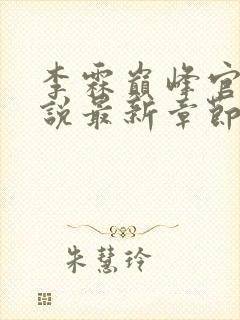 李霖巔峰官
說最新章節
朱慧玲